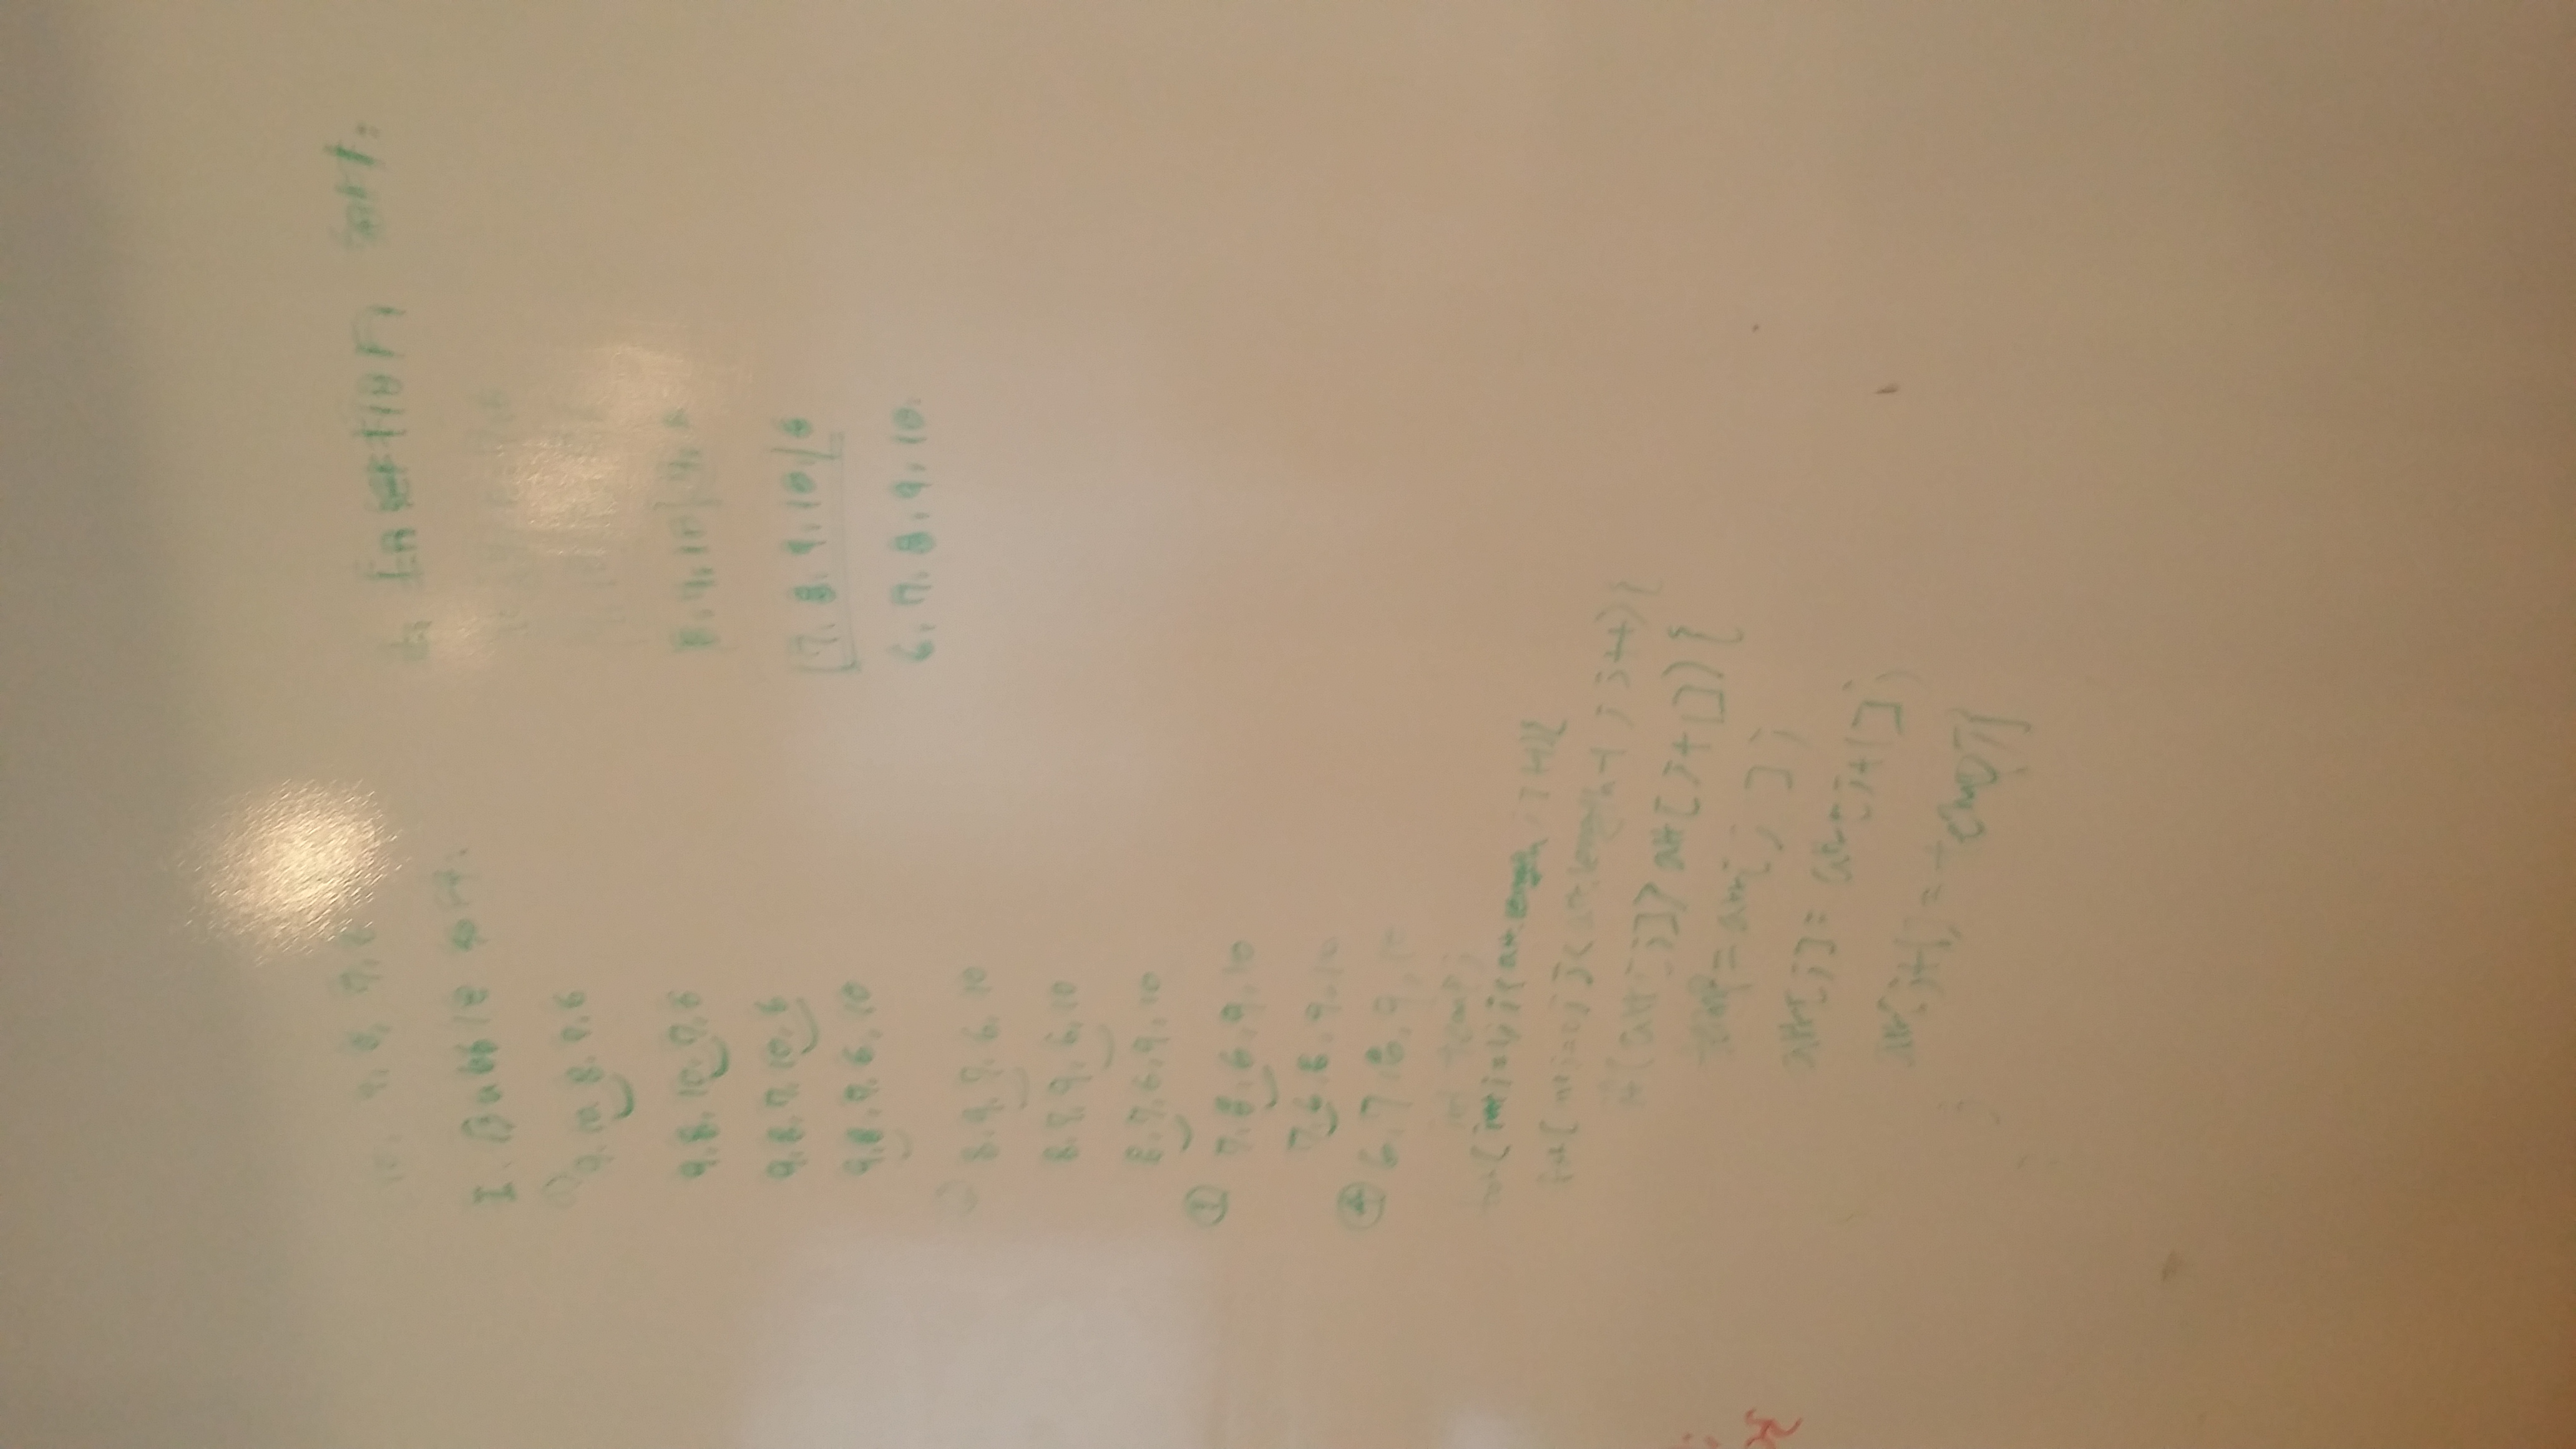 9, 8, 7, 6
I. Bubble sort.
9, 10, 8, 7, 6
9, 8, 10, 7, 6
9, 8, 7, 10, 6
9, 8, 7, 6, 10
8, 9, 7, 6, 10
8, 7, 9, 6, 10
8, 7, 6, 9, 10
③ 7, 8, 6, 9, 10
7, 6, 8, 9, 10
④ 6, 7, 8, 9, 10
int temp;
for( int i=1; i<arr.length ; i++){
for( int j=0; j<arr.length-1 ; j++){
if(arr[j]>arr[j+1]){
temp=arr[j];
arr[j]=arr[j+1];
arr[j+1]=temp;}
}
Insertion sort:
8, 9, 10| 7, 6
7, 8, 9, 10,| 6
6, 7, 8, 9, 10.